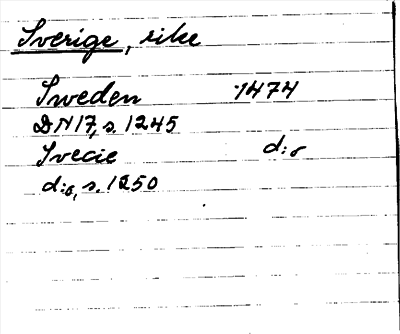 Sverige, rike
Sweden 1474
DN17, s. 1245
Svecie d:o
d:o, s. 1250